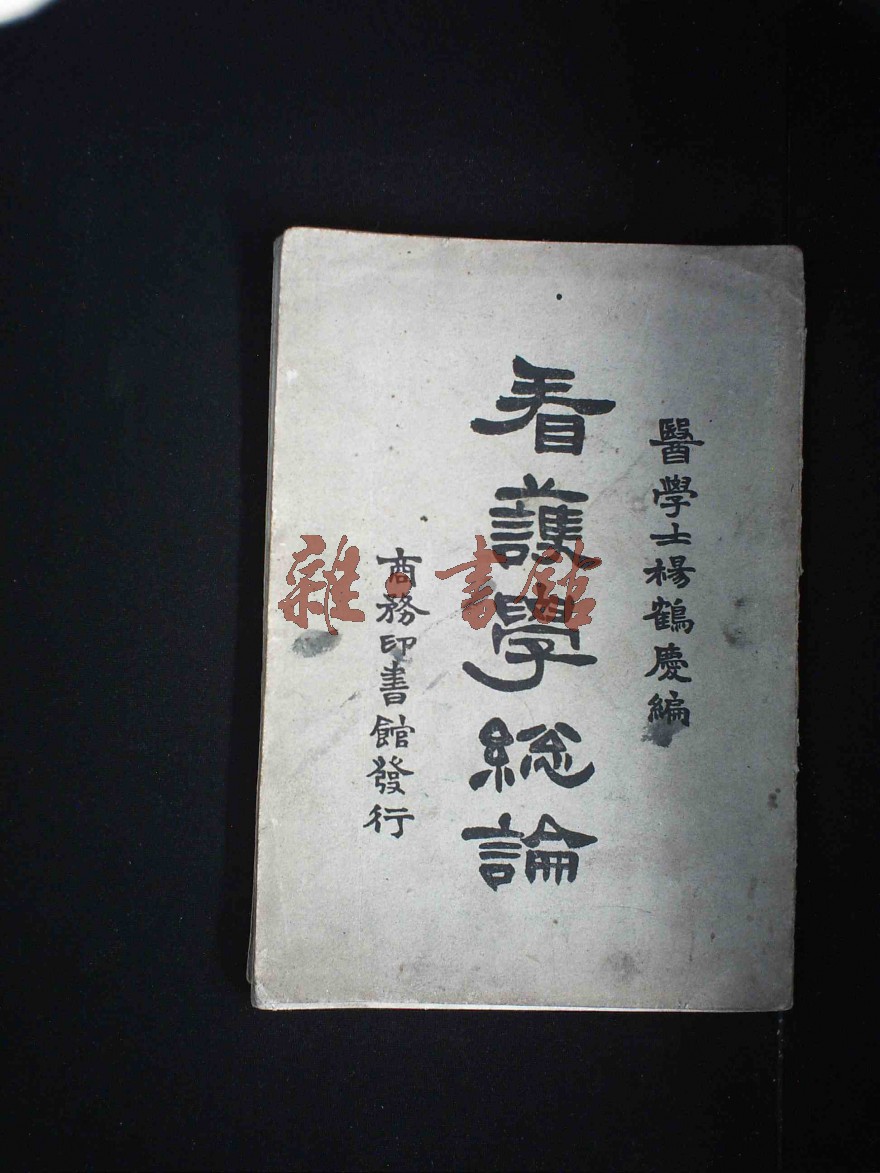 醫學士楊鶴慶編
看護學總論
商務印書館發行
雜·書館